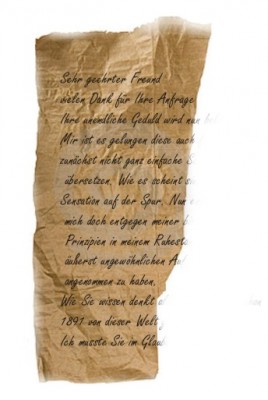 Sehr geehrter Freund
vielen Dank für Ihre Anfrage
Ihre unendliche Geduld wird nun
Mir ist es gelungen diese auch
zunächst nicht ganz einfache
übersetzen. Wie es scheint
Sensation auf der Spur. Nun
mich doch entgegen meiner
Prinzipien in meinem Ruhest
äußerst ungewöhnlichen
angenommen zu haben.
Wie Sie wissen denkt
1891 von dieser Welt
Ich musste Sie im Glau